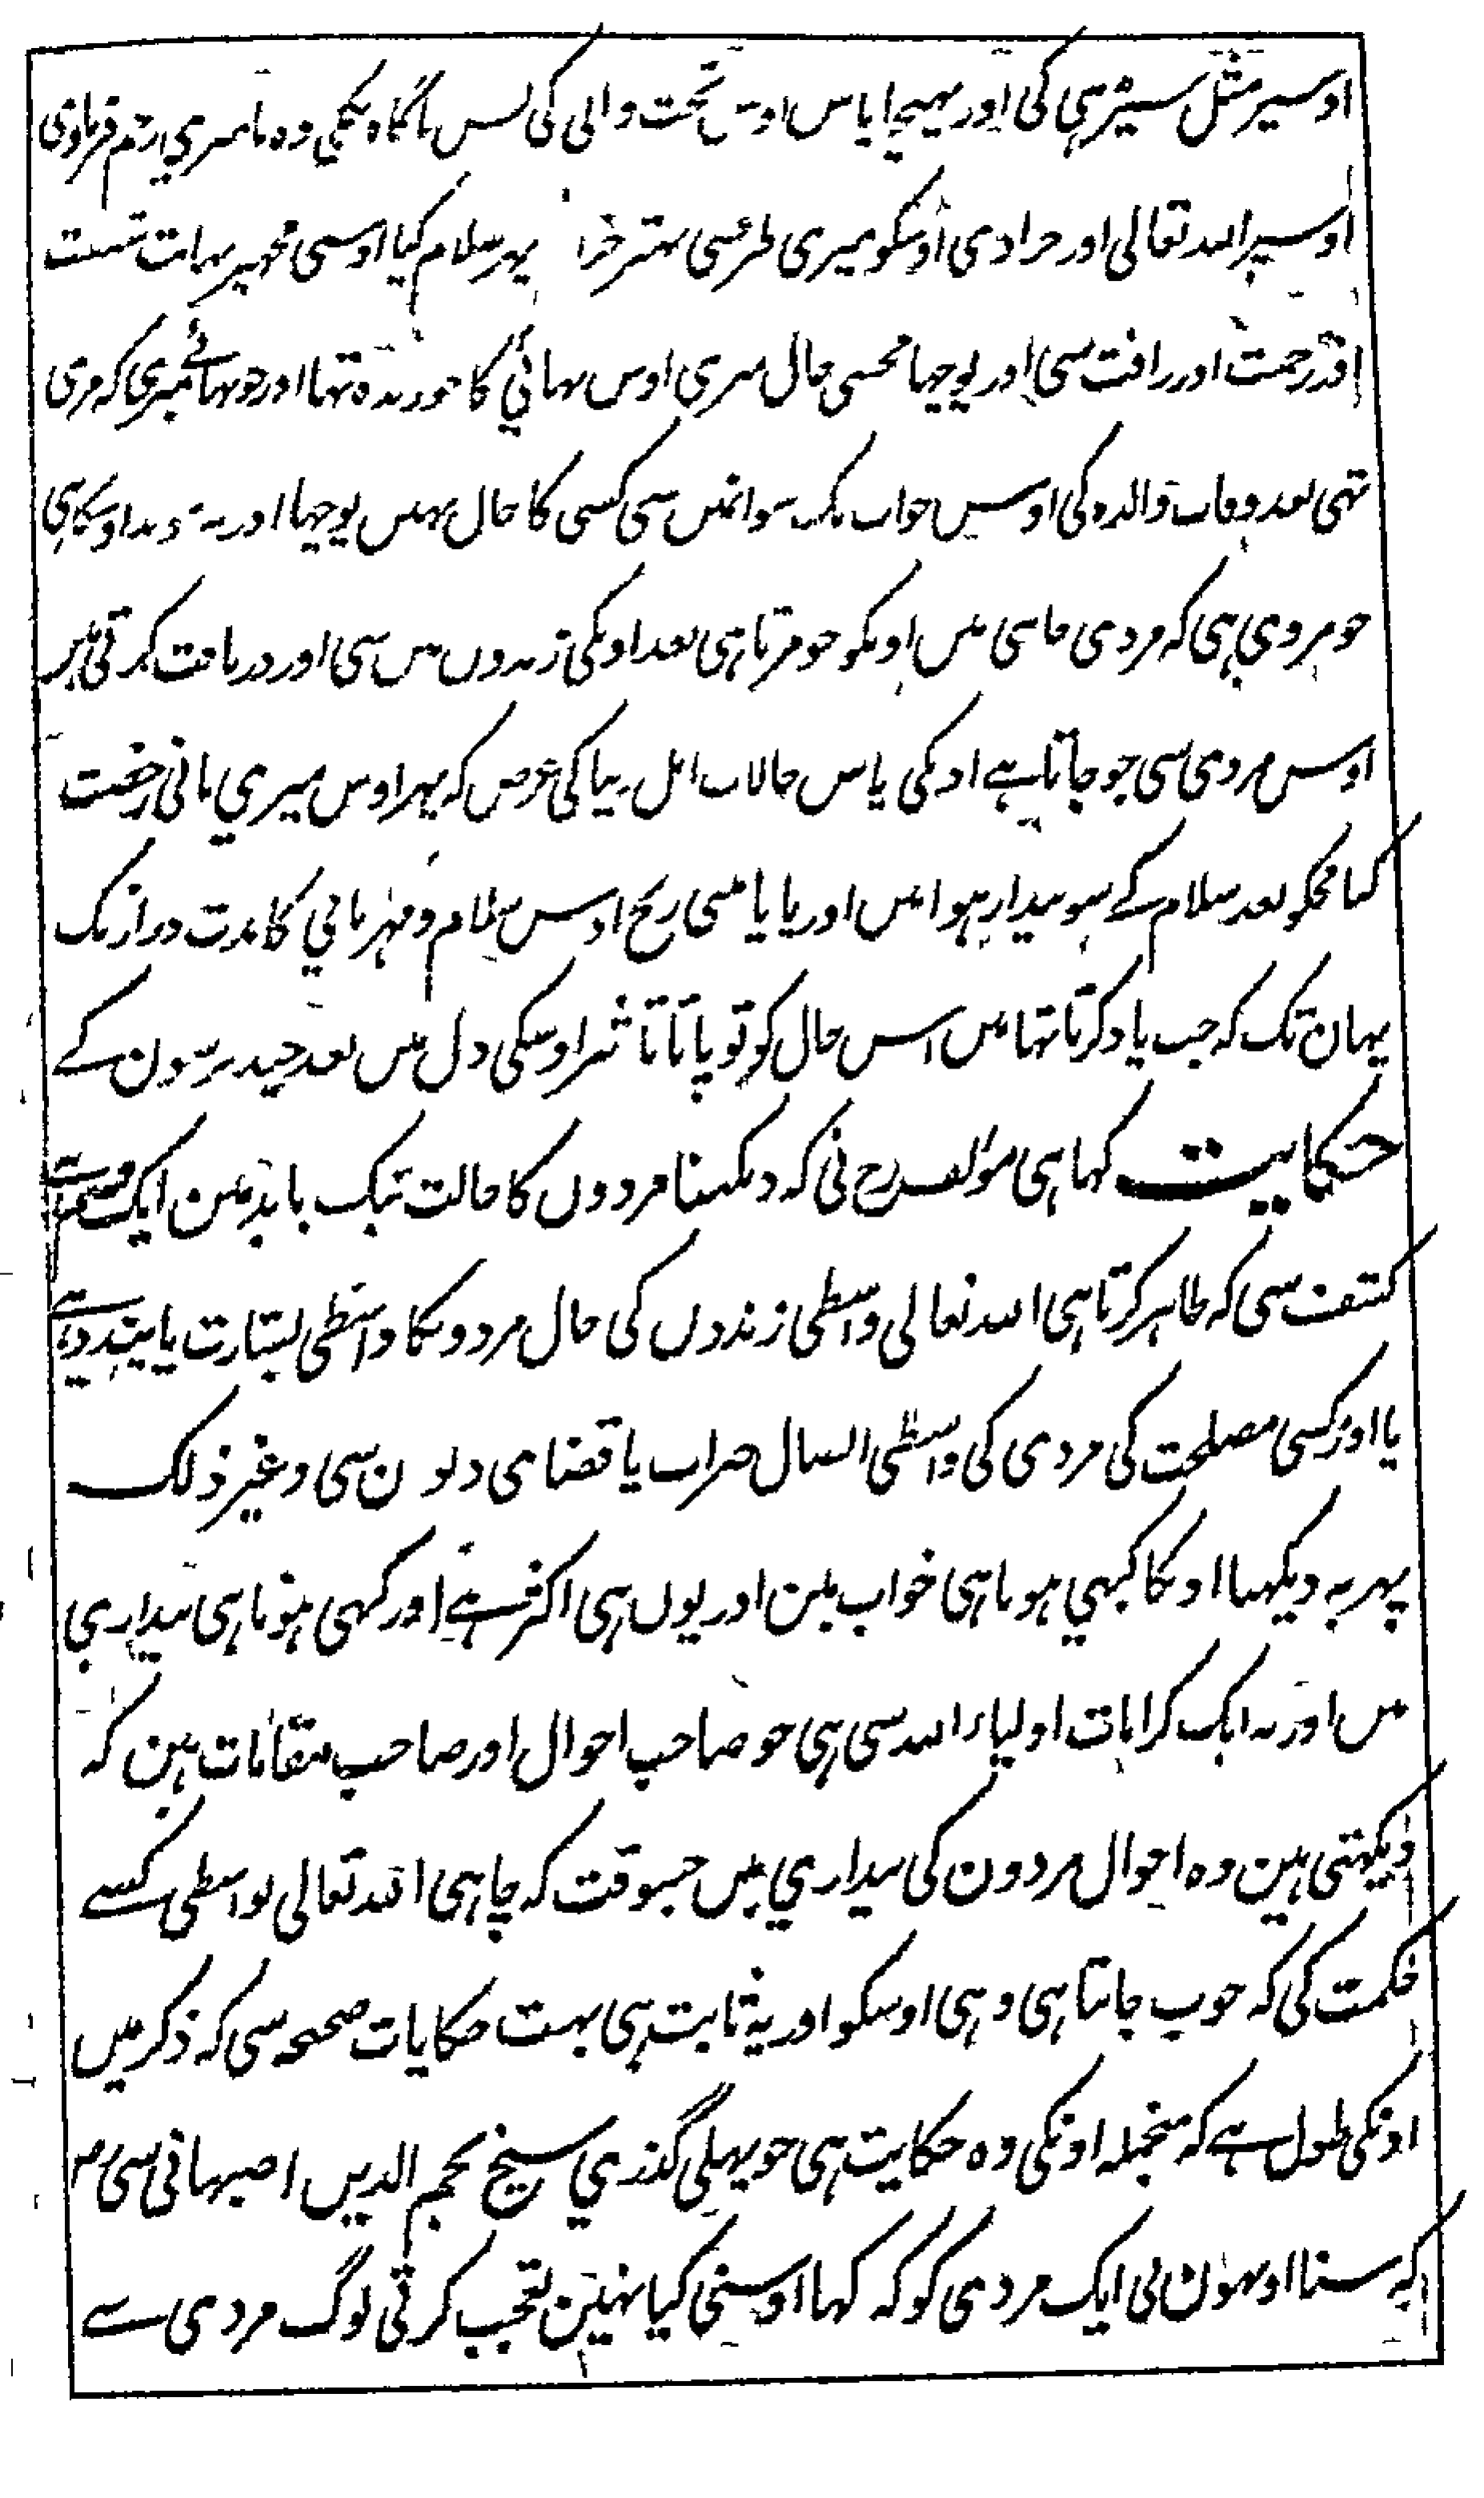 اوسپر مثل سیڑہی کی اور پہنچا پاس اوس تخت والی کی پس ناگاہ دیکھی وہ ما میری رحم فرماوی
اوسپر اللہ تعالی اور جزا دی اوسکو میری طرفسی بہتر جزا پہر سلام کیا اوسی مجہپر نہایت شفقت
اور رحمت اور رافت سی اور پوچہا مجہسی حال میری اوس بہائی کا جو زندہ تہا اور جو بہائی میری کہ مری
تہی بعد وفات والدہ کی اوسیں جواب تک سو انمیں سی کسی کا حال نہیں پوچہا اور یہ موید اوسکا ہی
جو مروی ہی کہ مردی جانتی ہیں اوسکو جو مرتا ہی بعد اونکی زندوں میں سی اور دریافت کرتی ہیں
اوس مردی سی جو جاتا ہے اونکی پاس حالات اہل دنیا کی غرض کہ پہر اوس میری مانی رخصت
کیا مجکو بعد سلام کے سو بیدار ہوا میں اور پایا مینی رنج اوس سلام و مہربانی کا مدت دراز تک
یہان تک کہ جب یاد کرتا تہا میں اس حال کو تو پاتا تاثیر اوسکی دل میں بعد چند برسون کے
حکایت کہا ہی مؤلف رح نی کہ دیکہنا مردوں کا حالت نیک یا بد مین ایک قسم ہے
کشف سی کہ ظاہر کرتا ہی اللہ تعالی واسطی زندوں کی حال مردونکا واسطی بشارت یا پند دینے
یا اور کسی مصلحت کی مردی کی واسطی ایصال خیرات یا قضای دیون سی وغیر ذلک
پہر یہ دیکہنا اونکا کبہی ہوتا ہی خواب مین اور یوں ہی اکثر ہے اور کبہی ہوتا ہی بیداری
میں اور یہ ایک کرامات اولیاء اللہ سی ہی جو صاحب احوال اور صاحب مقامات ہین کہ
دیکہتی ہین وہ احوال مردون کی بیداری میں جسوقت کہ چاہی اللہ تعالی بواسطی کسے
حکمت کی کہ خوب جانتا ہی وہی اوسکو اور یہ ثابت ہی بہت حکایات صحیحہ سی کہ ذکر میں
اونکی طول ہے کہ منجملہ اونکی وہ حکایت ہی جو پہلی گذری شیخ نجم الدین اصبہانی سی رح
کہ سنا اونہون نی ایک مردی کو کہ کہا اوسنی کیا نہین تعجب کرتی لوگ مردی سے